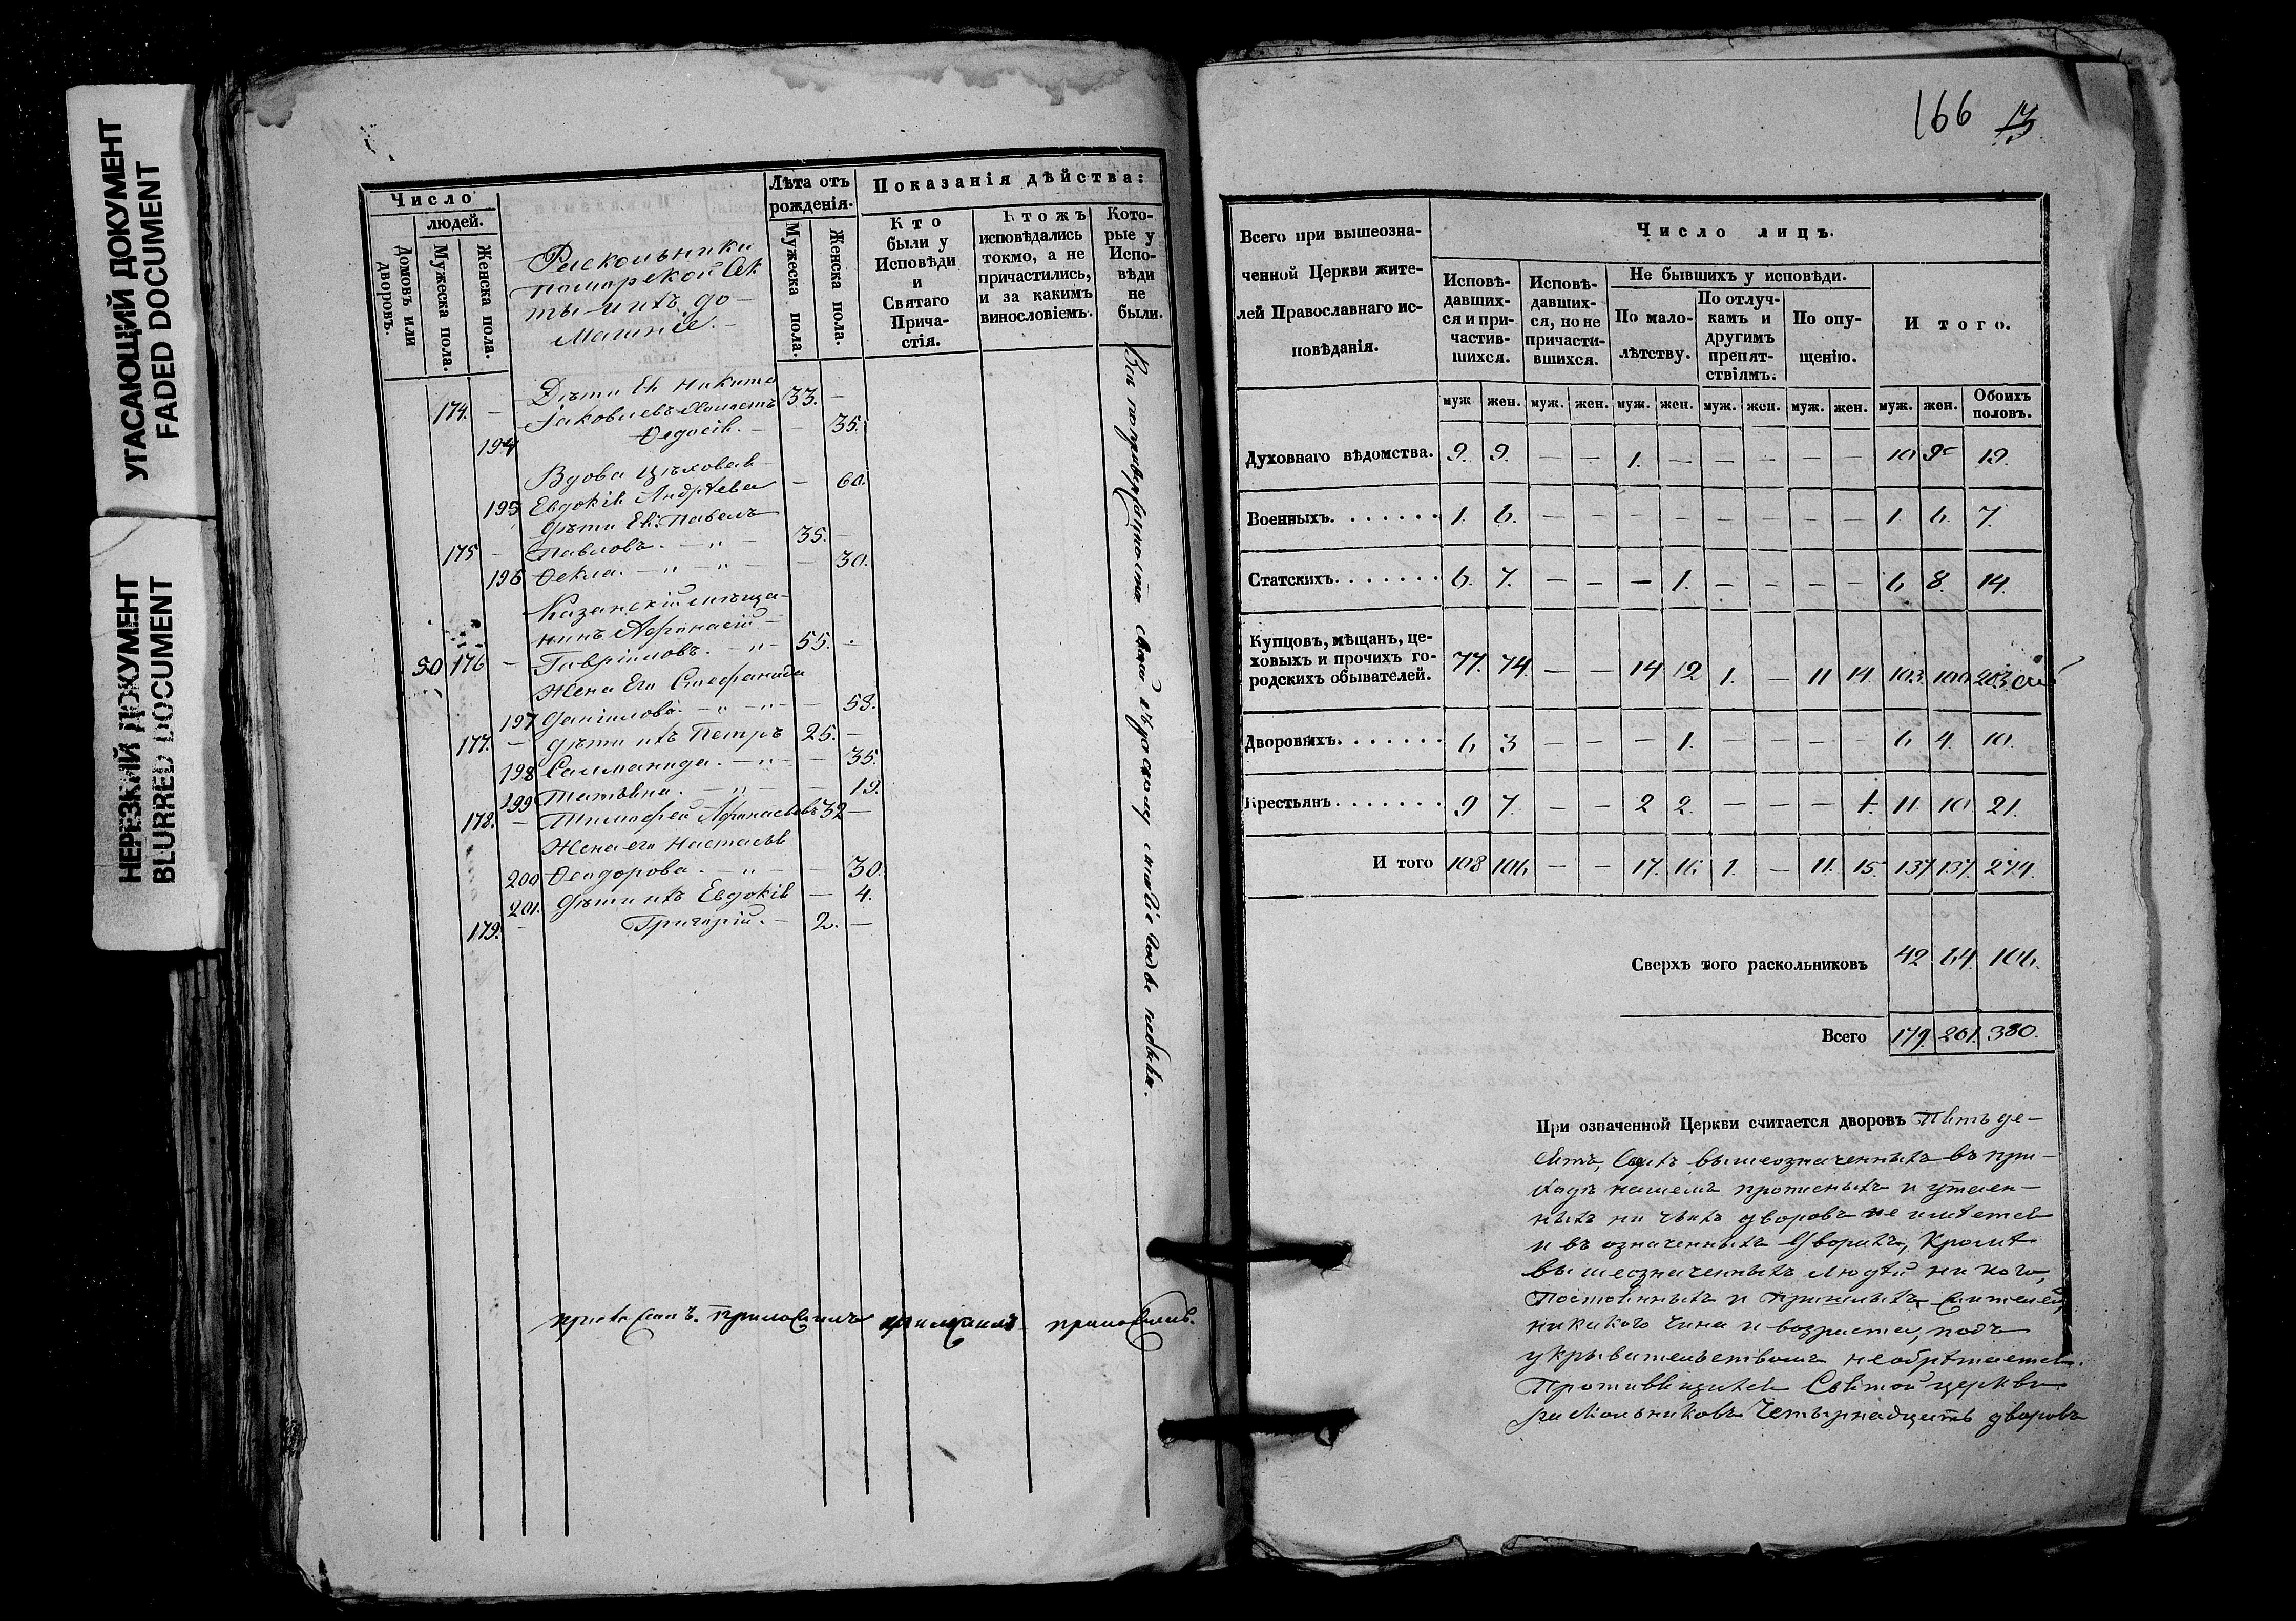 УГАСАЮЩИЙ ДОКУМЕНТ
FADED DOCUMENT
НЕРЕЗКИЙ ДОКУМЕНТ
BLURRED DOCUMENT
Число
людей.
Домовъ или дворовъ.
Мужеска пола.
Женска пола.
Раскольники
поморской сек
ты и ихъ до-
машніе.-
Лѣта отъ рожденія.
Мужеска пола.
Женска пола.
Показанія дѣйства:
Кто были у Исповѣди и Святаго Прича-стія.
Ктожъ исповѣдались токмо, а не причастились, и за какимъ винословіемъ.
Кото-рые у Испо-вѣди не были.
Дѣти Ея Никита
174. - Іаковлевъ Холостъ 33. -
194 Ѳедосія. - - 35.
Вдова Цѣховая
195 Евдокія Андрѣева - 60.
Дѣти Ея: Павелъ
175 - Павловъ. - " - 35. -
196 Ѳекла. - " - " - - 30.
Казанскій мѣща-
нинъ Афонасій -
50 176 - Гавріиловъ. - " - 55. -
Жена Его Стефанида
197 Даніилова. - " - " - - 58.
177. - Дѣти ихъ Петръ 25. -
198 Саломанида. - " - - 35.
199 Татьяна. - " - - 19.
178. - Тимофей Афонасьевъ 32 -
Жена его Настасья
200 Ѳеодорова. - " - - 30.
201. Дѣти ихъ Евдокія - 4.
179. - Григорій. - 2. -
Всѣ по
небыли.
166 13
Всего при вышеозна-ченной Церкви жите-лей Православнаго ис-повѣданія.
Число лицъ.
Исповѣ-давших-ся и при-частив-шихся.
Исповѣ-давших-ся, но не причасти-вшихся.
Не бывшихъ у исповѣди.
По мало-лѣтству.
По отлуч-камъ и другимъ препят-ствіямъ.
По опу-щенію.
И того.
муж. жен. муж. жен. муж. жен. муж. жен. муж. жен. муж. жен. Обоихъ половъ.
Духовнаго вѣдомства. 9. 9. - - 1. - - - - - 10 9 19.
Военныхъ. . . . . . . 1. 6. - - - - - - - - 1 6. 7.
Статскихъ. . . . . . . 6. 7. - - - 1. - - - - 6 8. 14.
Купцовъ, мѣщанъ, це-
ховыхъ и прочихъ го-
родскихъ обывателей. 77. 74. - - 14 12 1. - 11 14. 103. 100 203
Дворовыхъ. . . . . . . 6 3 - - - 1. - - - - 6 4. 10.
Крестьянъ. . . . . . . 9 7. - - 2 2. - - - 1. 11. 10. 21.
И того 108 106 - - 17. 16 1. - 11. 15. 137 137. 274.
Сверхъ того раскольниковъ 42 64. 106.
Всего 179. 201. 380.
При означенной Церкви считается дворовъ Пятьде-
сятъ, вышеозначенныхъ въ при-
ходѣ нашемъ прописныхъ и утаен-
ныхъ ни чьихъ дворовъ не имѣется
и въ означенныхъ дворахъ, Кромѣ
вышеозначенныхъ людей ни кого,
Постоянныхъ и Пришлыхъ жителей,
никакого чина и возраста, подъ
укрывательствомъ необрѣтается.
Противящихся Святой церкви
раскольниковъ Четырнадцать дворовъ